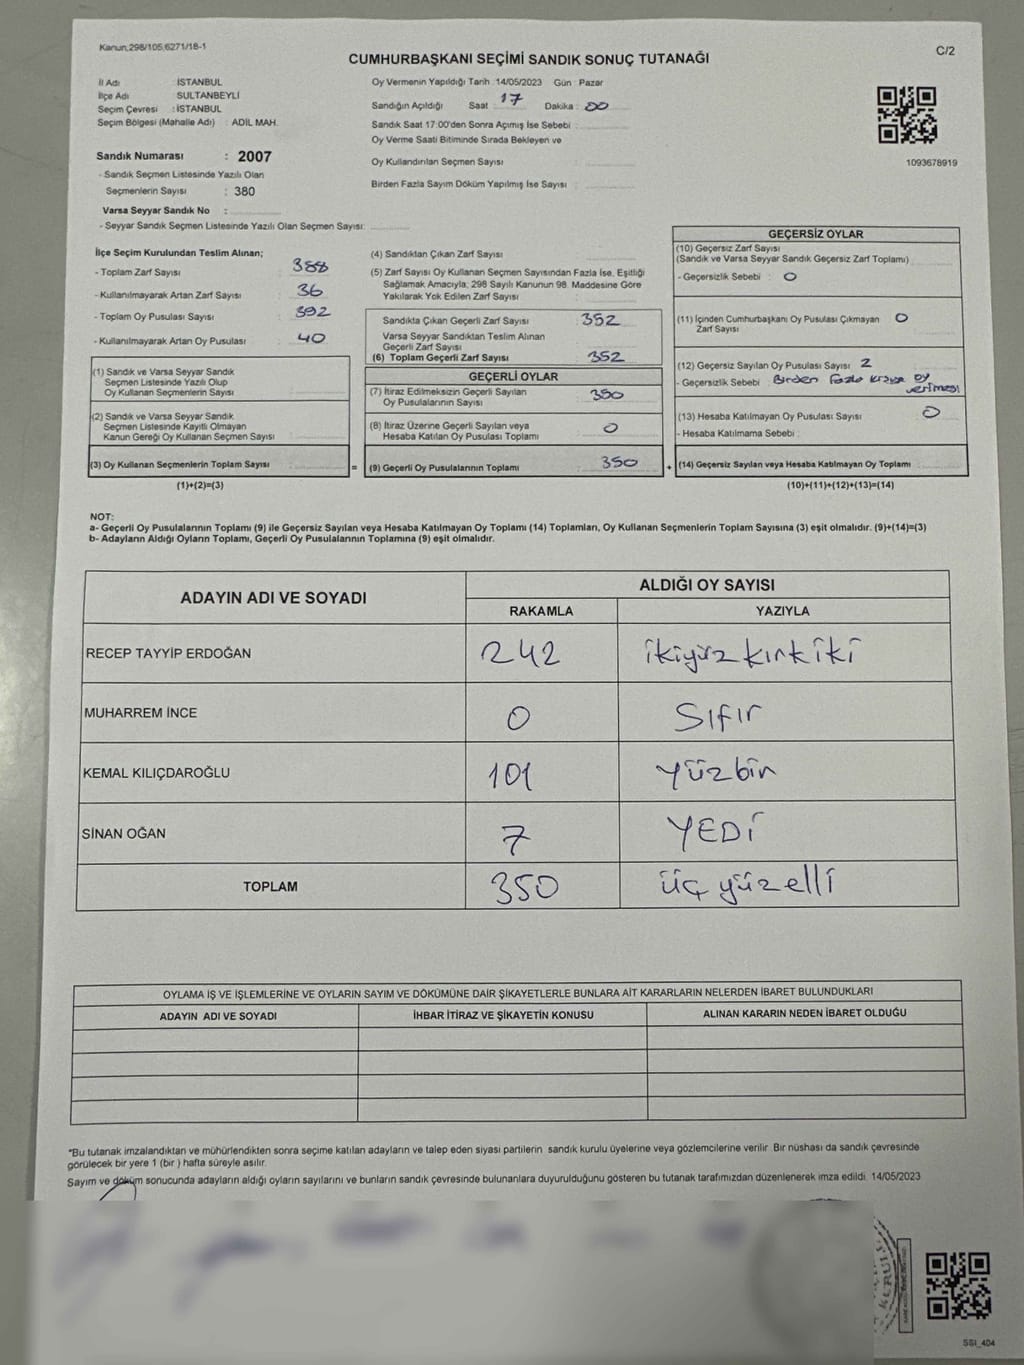 Kanun,298/105,6271/18-1
C/2
CUMHURBAŞKANI SEÇİMİ SANDIK SONUÇ TUTANAĞI
İl Adı : İSTANBUL
İlçe Adı : SULTANBEYLİ
Seçim Çevresi : İSTANBUL
Seçim Bölgesi (Mahalle Adı) : ADİL MAH.
Sandık Numarası : 2007
- Sandık Seçmen Listesinde Yazılı Olan
Seçmenlerin Sayısı : 380
Varsa Seyyar Sandık No :
- Seyyar Sandık Seçmen Listesinde Yazılı Olan Seçmen Sayısı:
Oy Vermenin Yapıldığı Tarih :14/05/2023 Gün : Pazar
Sandığın Açıldığı Saat : 17 Dakika : 00
Sandık Saat 17:00'den Sonra Açılmış İse Sebebi :
Oy Verme Saati Bitiminde Sırada Bekleyen ve
Oy Kullandırılan Seçmen Sayısı :
Birden Fazla Sayım Döküm Yapılmış İse Sayısı :
1093678919
İlçe Seçim Kurulundan Teslim Alınan;
- Toplam Zarf Sayısı : 388
- Kullanılmayarak Artan Zarf Sayısı : 36
- Toplam Oy Pusulası Sayısı : 392
- Kullanılmayarak Artan Oy Pusulası : 40
(1) Sandık ve Varsa Seyyar Sandık
Seçmen Listesinde Yazılı Olup
Oy Kullanan Seçmenlerin Sayısı :
(2) Sandık ve Varsa Seyyar Sandık
Seçmen Listesinde Kayıtlı Olmayan
Kanun Gereği Oy Kullanan Seçmen Sayısı :
(3) Oy Kullanan Seçmenlerin Toplam Sayısı :
(1)+(2)=(3)
(4) Sandıktan Çıkan Zarf Sayısı :
(5) Zarf Sayısı Oy Kullanan Seçmen Sayısından Fazla İse, Eşitliği
Sağlamak Amacıyla; 298 Sayılı Kanunun 98. Maddesine Göre
Yakılarak Yok Edilen Zarf Sayısı :
Sandıkta Çıkan Geçerli Zarf Sayısı : 352
Varsa Seyyar Sandıktan Teslim Alınan
Geçerli Zarf Sayısı :
(6) Toplam Geçerli Zarf Sayısı : 352
GEÇERLİ OYLAR
(7) İtiraz Edilmeksizin Geçerli Sayılan
Oy Pusulalarının Sayısı : 350
(8) İtiraz Üzerine Geçerli Sayılan veya
Hesaba Katılan Oy Pusulası Toplamı : 0
= (9) Geçerli Oy Pusulalarının Toplamı : 350
GEÇERSİZ OYLAR
(10) Geçersiz Zarf Sayısı
(Sandık ve Varsa Seyyar Sandık Geçersiz Zarf Toplamı)
- Geçersizlik Sebebi : 0
(11) İçinden Cumhurbaşkanı Oy Pusulası Çıkmayan 0
Zarf Sayısı
(12) Geçersiz Sayılan Oy Pusulası Sayısı : 2
- Geçersizlik Sebebi : Birden fazla kişiye oy
verilmesi
(13) Hesaba Katılmayan Oy Pusulası Sayısı : 0
- Hesaba Katılmama Sebebi :
+ (14) Geçersiz Sayılan veya Hesaba Katılmayan Oy Toplamı :
(10)+(11)+(12)+(13)=(14)
NOT:
a- Geçerli Oy Pusulalarının Toplamı (9) ile Geçersiz Sayılan veya Hesaba Katılmayan Oy Toplamı (14) Toplamları, Oy Kullanan Seçmenlerin Toplam Sayısına (3) eşit olmalıdır. (9)+(14)=(3)
b- Adayların Aldığı Oyların Toplamı, Geçerli Oy Pusulalarının Toplamına (9) eşit olmalıdır.
ADAYIN ADI VE SOYADI ALDIĞI OY SAYISI
RAKAMLA YAZIYLA
RECEP TAYYİP ERDOĞAN 242 ikiyüz kırkiki
MUHARREM İNCE 0 Sıfır
KEMAL KILIÇDAROĞLU 101 yüzbir
SİNAN OĞAN 7 YEDİ
TOPLAM 350 üç yüz elli
OYLAMA İŞ VE İŞLEMLERİNE VE OYLARIN SAYIM VE DÖKÜMÜNE DAİR ŞİKAYETLERLE BUNLARA AİT KARARLARIN NELERDEN İBARET BULUNDUKLARI
ADAYIN ADI VE SOYADI İHBAR İTİRAZ VE ŞİKAYETİN KONUSU ALINAN KARARIN NEDEN İBARET OLDUĞU
*Bu tutanak imzalandıktan ve mühürlendikten sonra seçime katılan adayların ve talep eden siyasi partilerin sandık kurulu üyelerine veya gözlemcilerine verilir. Bir nüshası da sandık çevresinde
görülecek bir yere 1 (bir ) hafta süreyle asılır.
Sayım ve döküm sonucunda adayların aldığı oyların sayılarını ve bunların sandık çevresinde bulunanlara duyurulduğunu gösteren bu tutanak tarafımızdan düzenlenerek imza edildi. 14/05/2023
KURULU
SSI_404